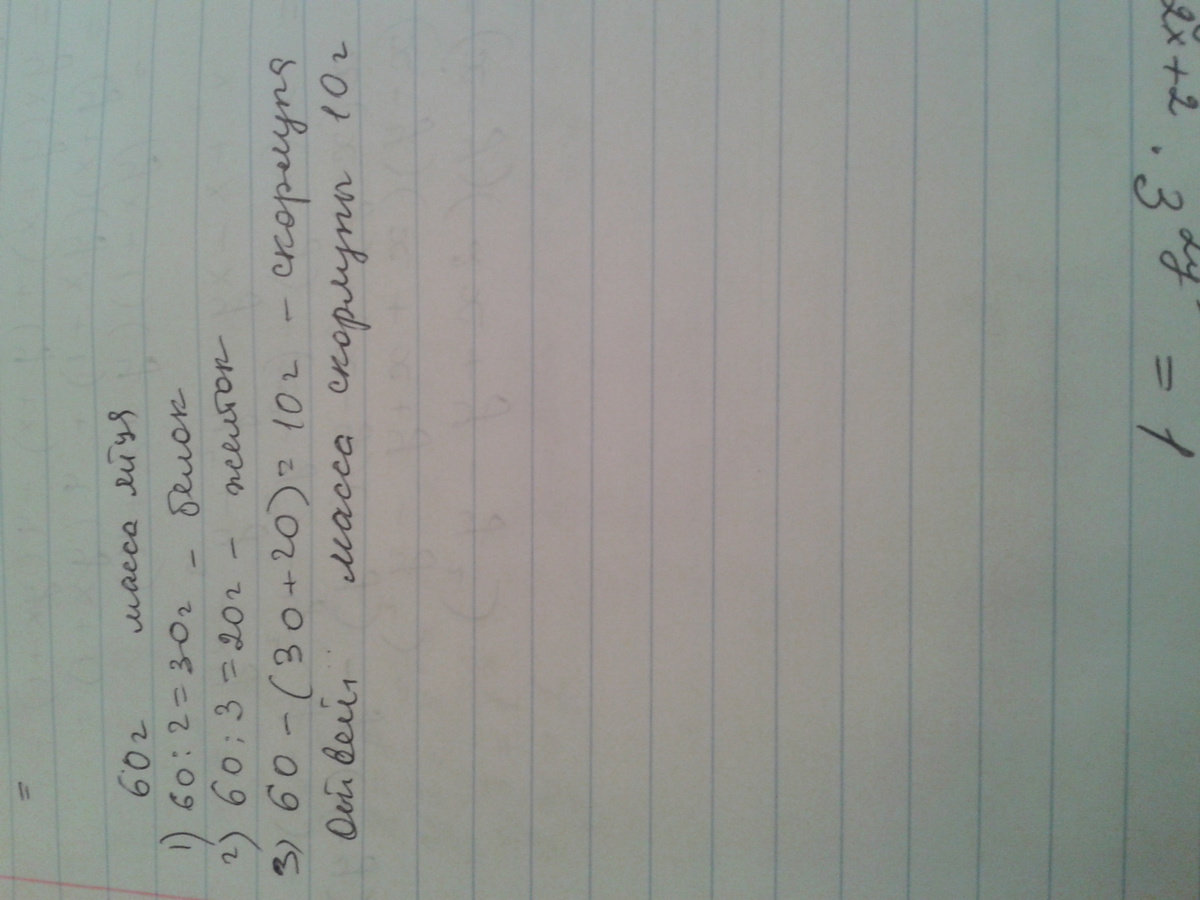 =
60г масса яйця
1) 60:2=30г - белок
2) 60:3=20г - желток
3) 60-(30+20)=10г - скорлупа
Ответ: масса скорлупы 10г
2x+2 · 3^2y = 1